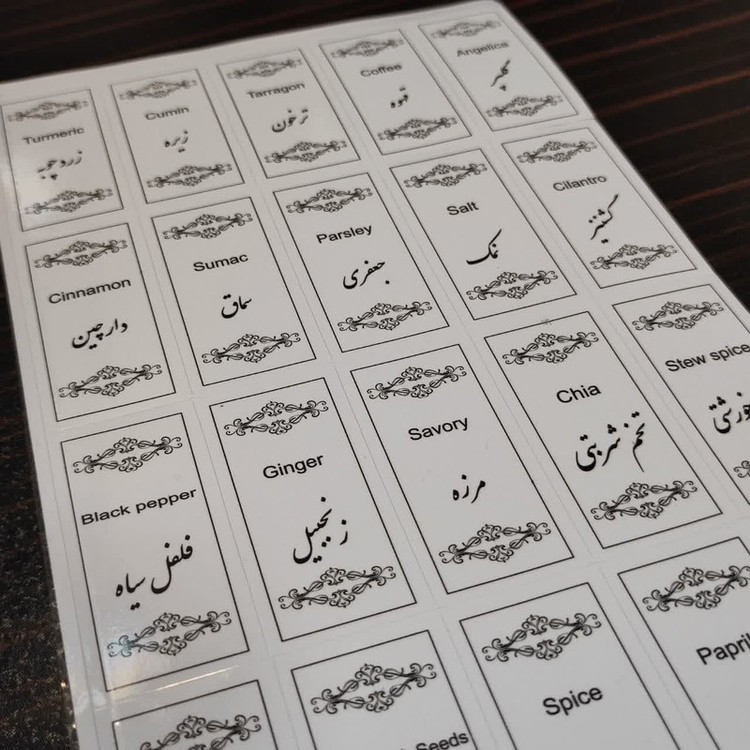 Turmeric
زردچوبه
Cumin
زیره
Tarragon
ترخون
Coffee
قهوه
Angelica
گلپر
Cinnamon
دارچین
Sumac
سماق
Parsley
جعفری
Salt
نمک
Cilantro
گشنیز
Black pepper
فلفل سیاه
Ginger
زنجبیل
Savory
مرزه
Chia
تخم شربتی
Stew spice
Seeds
Spice